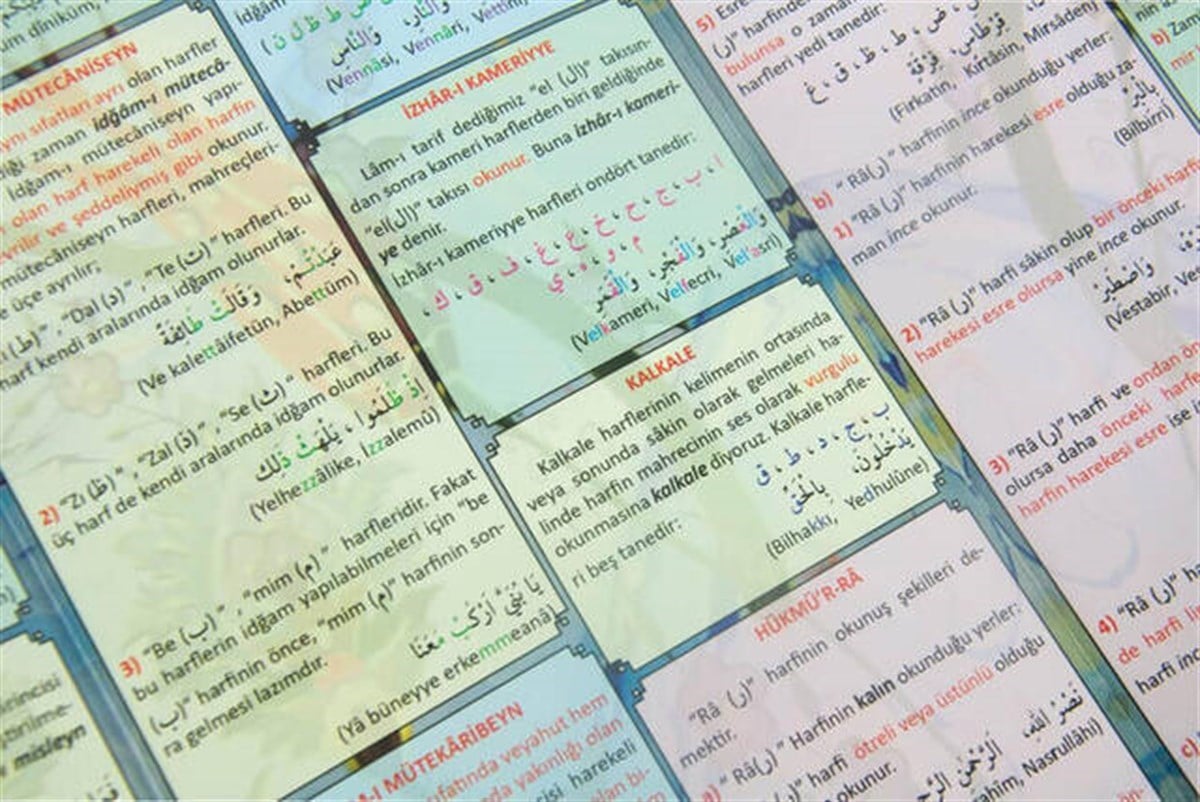 MÜTECÂNİSEYN
sıfatları ayrı olan harfler
zaman idğâm-ı mütecâ-
İdgam-ı mütecâniseyn yapı-
olan harf harekeli olan harfin
ve şeddeliymiş gibi okunur.
mütecâniseyn harfleri, mahreçleri-
üçe ayrılır;
(ط)", "Dal (د)", "Te (ت)" harfleri. Bu
harf kendi aralarında idğam olunurlar.
عَبَدْتُمْ، وَقَالَتْ طَائِفَةٌ
(Ve kalettâifetün, Abettüm)
2) "Zı (ظ)", "Zal (ذ)", "Se (ث)" harfleri. Bu
üç harf de kendi aralarında idğam olunurlar.
إِذْ ظَلَمُوا، يَلْهَثْ ذٰلِكَ
(Yelhezzâlike, Izzalemû)
3) "Be (ب)", "mim (م)" harfleridir. Fakat
bu harflerin idğam yapılabilmeleri için "be
(ب)" harfinin önce, "mim (م)" harfinin son-
ra gelmesi lazımdır.
يَا بُنَيَّ ارْكَبْ مَعَنَا
(Yâ büneyye erkemmeanâ)
misleyn
İdğâm
وَالنَّارِ، وَالنَّاسِ
(Vennâsi, Vennâri,
İZHÂR-I KAMERİYYE
Lâm-ı tarif dediğimiz "el (ال)" takısın-
dan sonra kameri harflerden biri geldiğinde
"el(ال)" takısı okunur. Buna izhâr-ı kameri-
ye denir.
İzhâr-ı kameriyye harfleri ondört tanedir:
ا، ب، ج، ح، خ، ع، غ، ف، ق، ك،
م، و، ه، ي
وَالْعَصْرِ، وَالْفَجْرِ، وَالْقَمَرِ
(Velkameri, Velfecri, Vel'asri)
KALKALE
Kalkale harflerinin kelimenin ortasında
veya sonunda sâkin olarak gelmeleri ha-
linde harfin mahrecinin ses olarak vurgulu
okunmasına kalkale diyoruz. Kalkale harfle-
ri beş tanedir:
ب، ج، د، ط، ق
يَدْخُلُونَ، بِالْحَقِّ
(Bilhakkı, Yedhulûne)
HÜKMÜ'R-RÂ
"Râ (ر)" harfinin okunuş şekilleri de-
mektir.
a) "Râ(ر)" Harfinin kalın okunduğu yerler:
harfi ötreli veya üstünlü olduğu
okunur.
نَصْرُ اللّٰهِ،
Nasrullâhi)
MÜTEKÂRİBEYN
sıfatında veyahut hem
yakınlığı olan
harekeli
5) Esre
(ر)" harfinden
bulunsa o zaman
harfleri yedi tanedir:
ص، ض، ط، ظ، ق، غ
قِرْطَاسٍ، فِرْقَةٍ
(Firkatin, Kırtâsin, Mirsâden)
b) "Râ(ر)" harfinin ince okunduğu yerler:
1) "Râ (ر)" harfinin harekesi esre olduğu za-
man ince okunur.
بِالْبِرِّ
(Bilbirri)
2) "Râ (ر)" harfi sâkin olup bir önceki harfin
harekesi esre olursa yine ince okunur.
وَاصْطَبِرْ
(Vestabir,
3) "Râ (ر)" harfi ve ondan
olursa daha önceki
harfin harekesi esre ise
4) "Râ (ر)"
de harfi
harfi
c)
b)